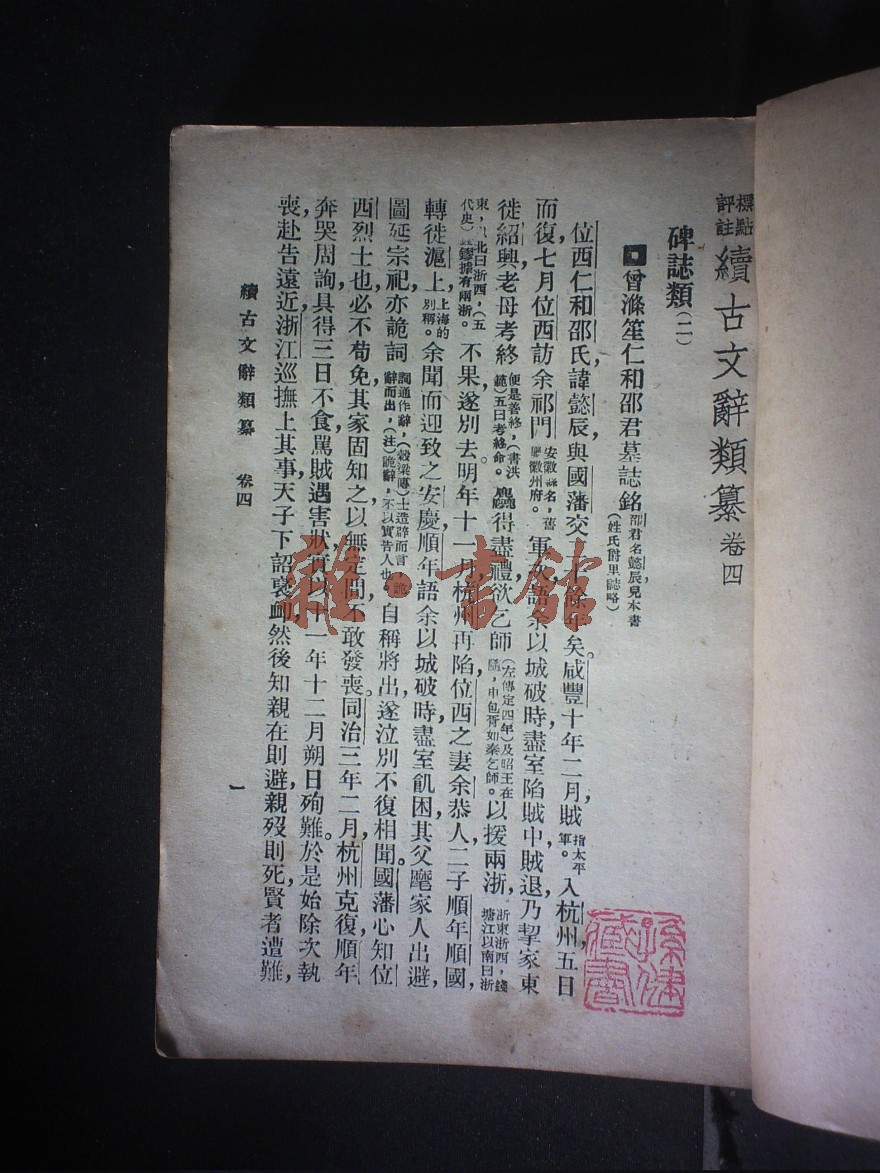 標點評註續古文辭類纂卷四
碑誌類(二)
曾滌笙仁和邵君墓誌銘(邵君名懿辰見本書姓氏爵里誌略)
位西仁和邵氏諱懿辰,與國藩交餘年矣。咸豐十年二月,賊指太平軍。入杭州,五日
而復,七月,位西訪余祁門安徽縣名,舊屬徽州府。軍次,語余以城破時,盡室陷賊中,賊退,乃挈家東
徙紹興,老母考終便是善終,(書洪範)五曰考終命。麤得盡禮,欲乞師(左傳定四年)及昭王在隨,申包胥如秦乞師。以援兩浙,浙東浙西,錢塘江以南曰浙
東,以北曰浙西,(五代史)錢鏐據有兩浙。不果,遂別去。明年十一月,杭州再陷,位西之妻余恭人,二子順年順國,
轉徙滬上,上海的別稱。余聞而迎致之安慶,順年語余以城破時,盡室飢困,其父麾家人出避,
圖延宗祀,亦詭詞詞通作辭,(穀梁傳)士造辟而言,詭辭而出,(注)詭辭,不以實告人也。自稱將出,遂泣別不復相聞。國藩心知位
西烈士也,必不苟免,其家固知之,以無定問,不敢發喪。同治三年二月,杭州克復,順年
奔哭周詢,具得三日不食,罵賊遇害狀,實以十一年十二月朔日殉難。於是始除次執
喪,赴告遠近,浙江巡撫上其事,天子下詔襃卹,然後知親在則避,親歿則死,賢者遭難,
續古文辭類纂 卷四
一
孫健藏書
雜·書館